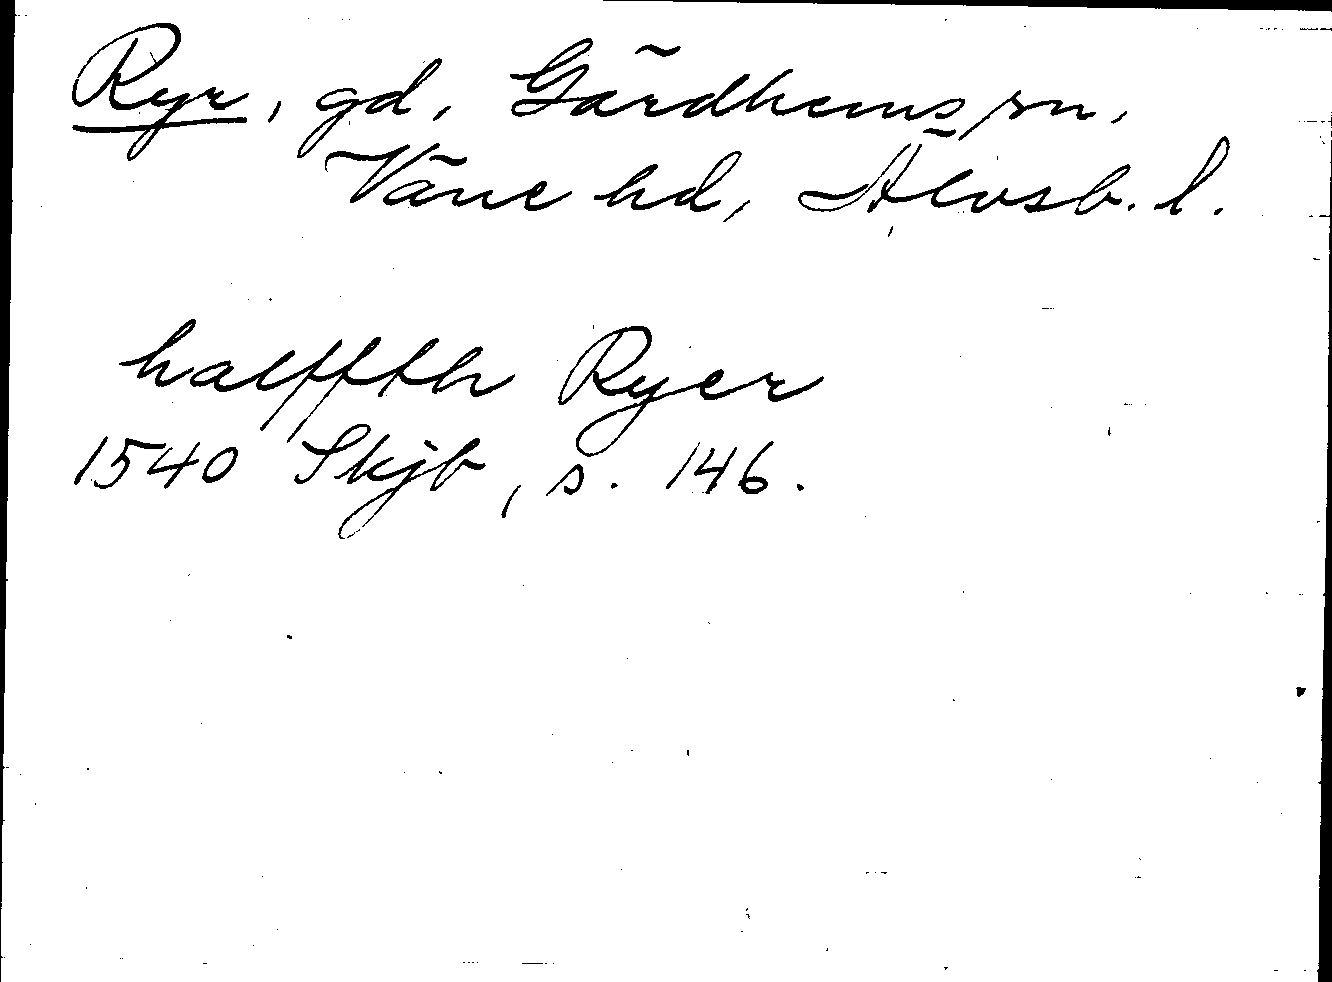 Ryr, gd, Gärdhems sn,
Väne hd, Älvsb. l.
halffth Ryer
1540 Skjb, s. 146.